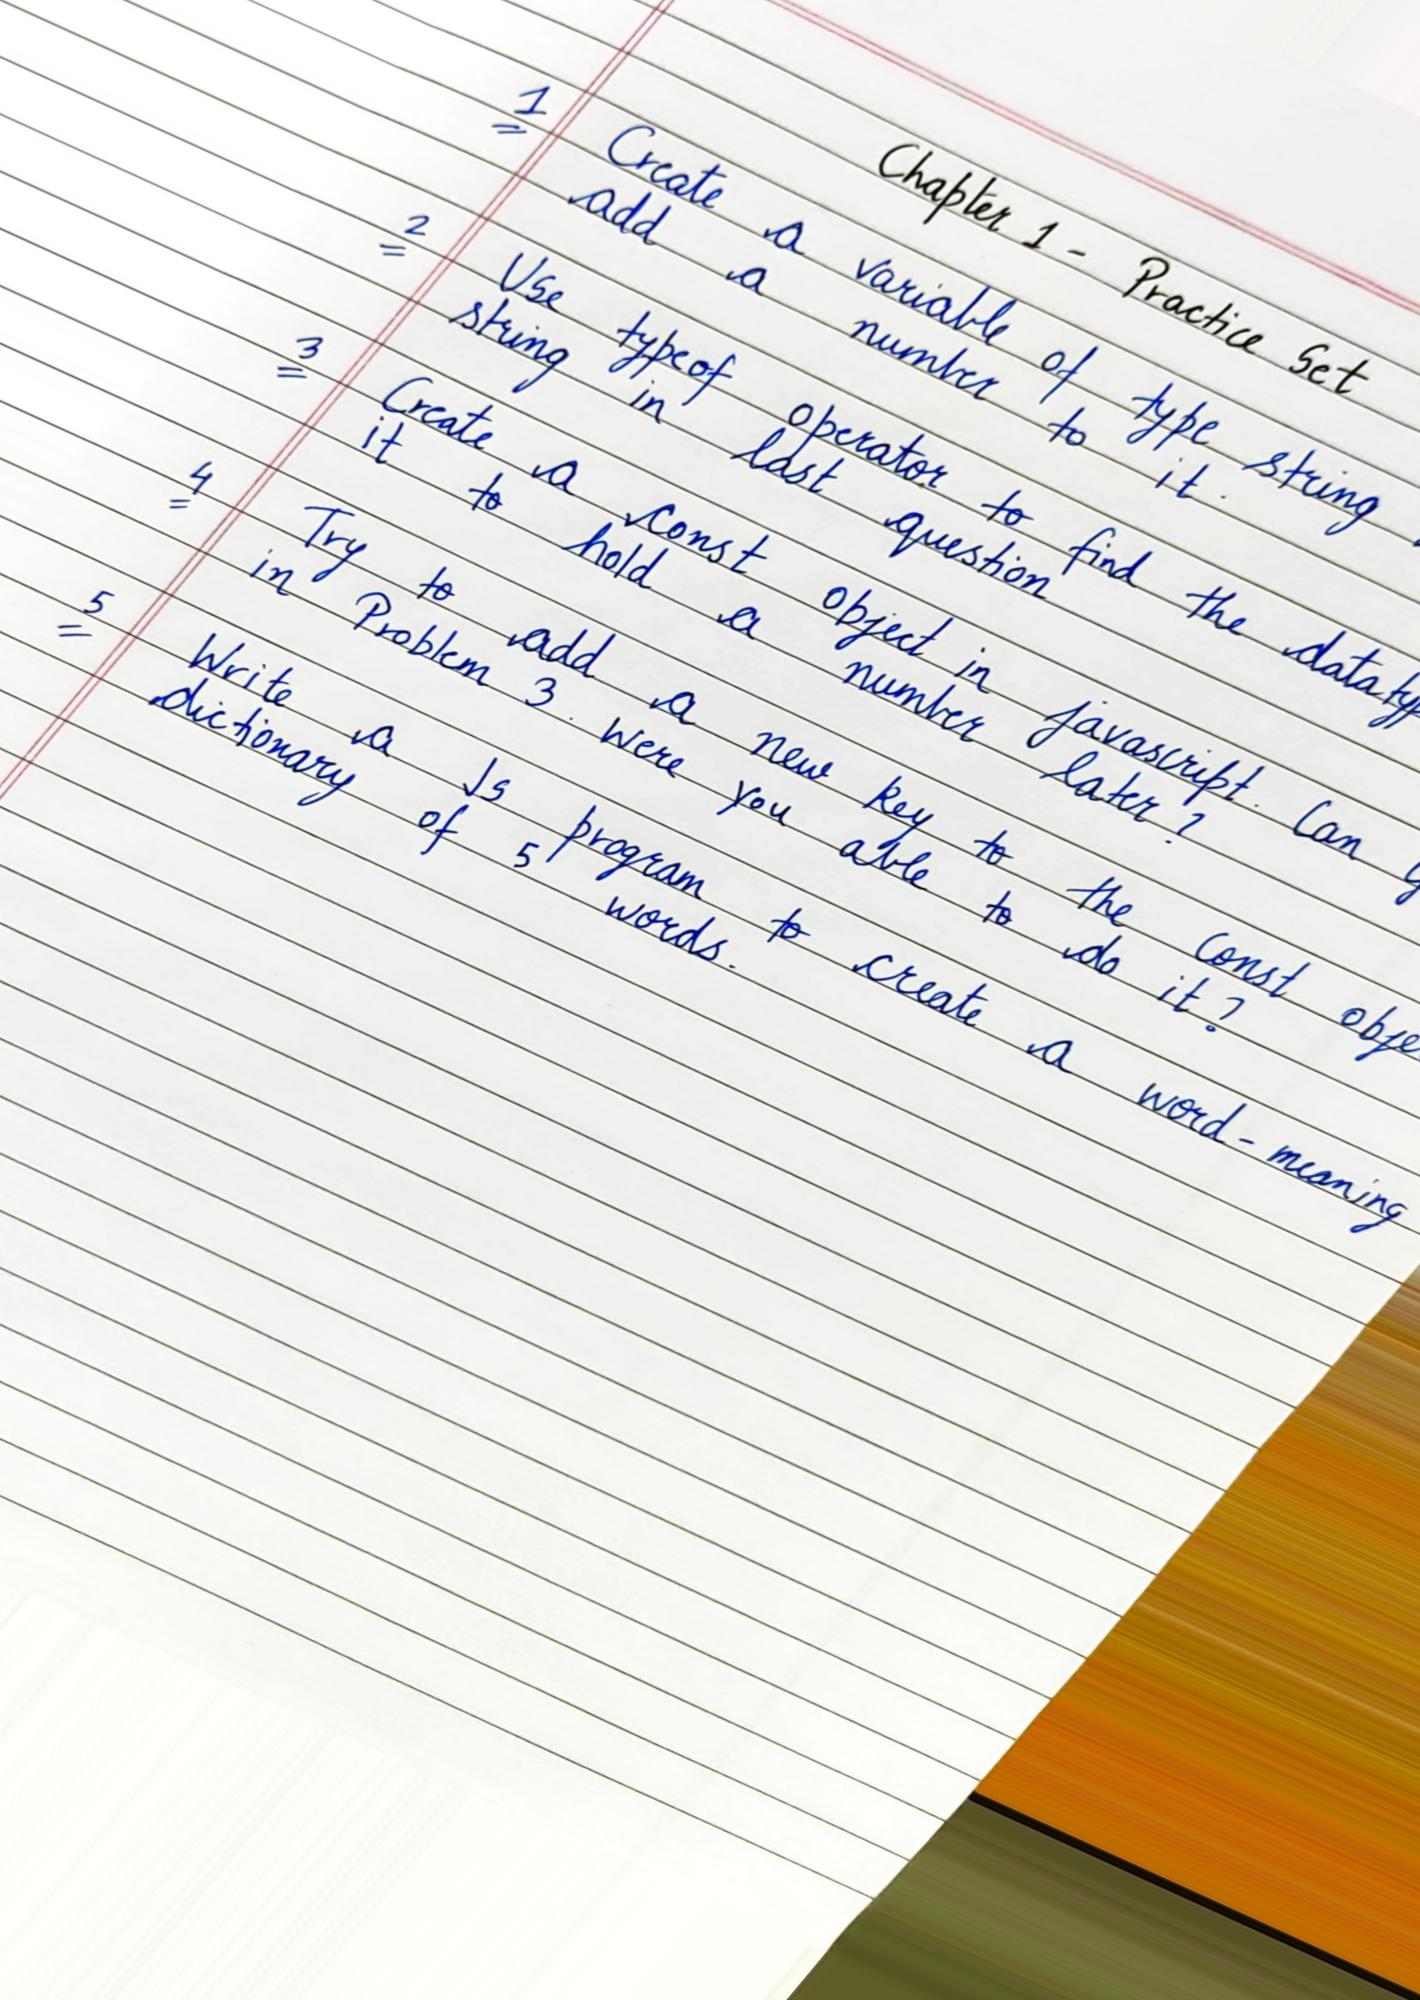 Chapter 1 - Practice Set
1 Create a variable of type string
add a number to it.
2 Use typeof operator to find the
string in last question
3 Create a const object in javascript. Can
it to hold a number later?
4 Try to add a new key to the const
in Problem 3. Were you able to do it?
5 Write a Js program to create a word-meaning
dictionary of 5 words.